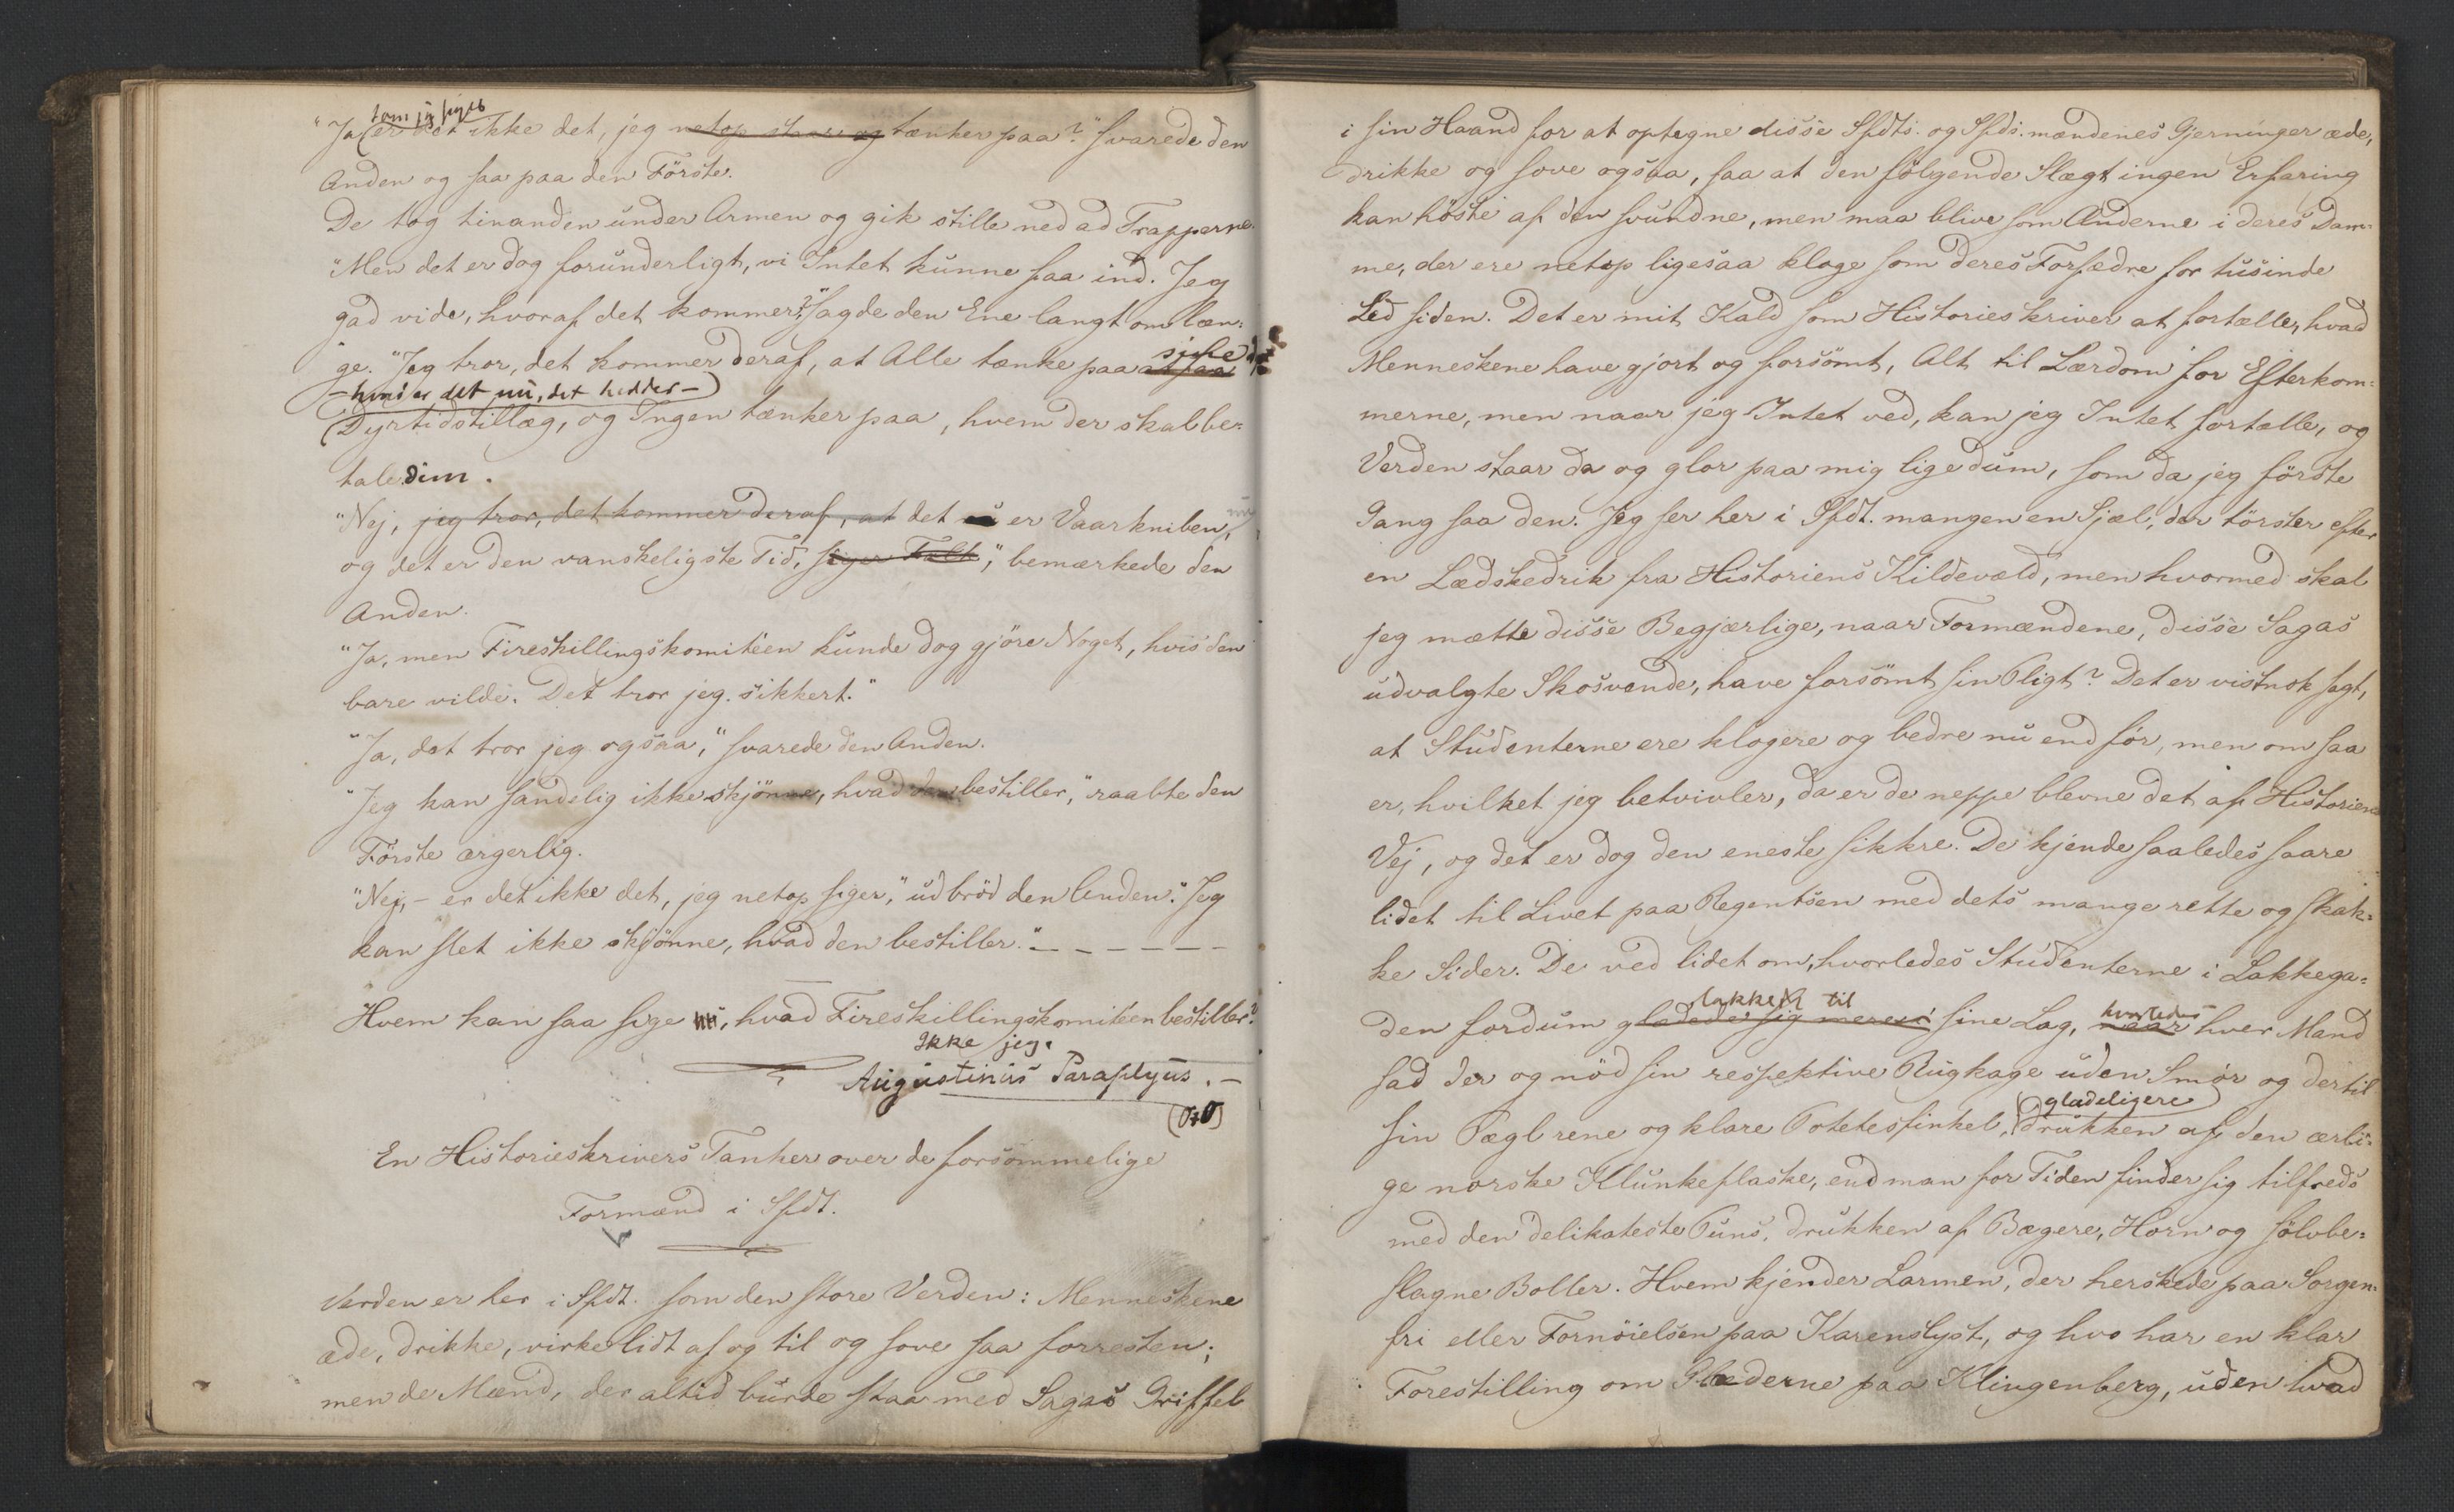 som jeg siger
"Ja er det ikke det, jeg netop staar og tænker paa?" svarede den
Anden og saa paa den Förste.
De tog hinanden under Armen og gik stille ned ad Trapperne.
"Men det er dog forunderligt, vi Intet kunne faa ind. Jeg
gad vide, hvoraf det kommer?" sagde den Ene langt om læn-
ge. "Jeg tror, det kommer deraf, at Alle tænke paa at faa
- hvad er det nu, det hedder -
Dyrtidstillæg, og Ingen tænker paa, hvem der skal be-
tale dem.
"Nej, jeg tror, det kommer deraf, at det er Vaarkniben,
og det er den vanskeligste Tid, siger Folk", bemærkede den
Anden.
"Ja, men Fireskillingskomitéen kunde dog gjöre Noget, hvis den
bare vilde. Det tror jeg sikkert."
"Ja, det tror jeg ogsaa," svarede den Anden.
"Jeg kan sandelig ikke skjönne, hvad den bestiller," raabte den
Förste ærgerlig.
"Nej, - er det ikke det, jeg netop siger," udbröd den Anden. "Jeg
kan slet ikke skjönne, hvad den bestiller." - - - - - -
Hvem kan saa sige, hvad Fireskillingskomitéen bestiller?
Ikke jeg.
Augustinus Paraplyus. -
En Historieskrivers Tanker over de forsömmelige
Formænd i Sfdt.
Verden er her i Sfdt. som den store Verden: Menneskene
æde, drikke, virke lidt af og til og sove saa forresten;
men de Mænd, der altid burde staa med Sagas Griffel
i sin Haand for at optegne disse Sfdts. og Sfds.mændenes Gjerninger æde,
drikke og sove ogsaa, saa at den fölgende Slægt ingen Erfaring
kan höste af den svundne, men maa blive som Ænderne i deres Dam-
me, der ere netop ligesaa kloge som deres Forfædre for tusinde
Led siden. Det er mit Kald som Historieskriver at fortælle, hvad
Menneskene have gjort og forsömt, Alt til Lærdom for Efterkom-
merne, men naar jeg Intet ved, kan jeg Intet fortælle, og
Verden staar da og glor paa mig lige dum, som da jeg förste
Gang saa den. Jeg ser her i Sfdt. mangen en Sjæl, der törster efter
en Lædskedrik fra Historiens Kildevæld, men hvormed skal
jeg mætte disse Begjærlige, naar Formændene, disse Sagas
udvalgte Skosvende, have forsömt sin Pligt? Det er vistnok sagt,
at Studenterne ere klogere og bedre nu end för, men om saa
er, hvilket jeg betvivler, da er de neppe blevne det af Historiens
Vej, og det er dog den eneste sikkre. De kjende saaledes saare
lidet til Livet paa Regentsen med dets mange rette og skak-
ke Sider. De ved lidet om, hvorledes Studenterne i Lakkega-
lakked til hvorledes
den fordum gladede sig mere i sine Lag, naar hver Mand
sad der og nöd sin respektive Rugkage uden Smör og dertil
gladeligere
sin Pægl rene og klare Potetesfinkel, drukken af den ærli-
ge norske Klunkeflaske, end man for Tiden finder sig tilfreds
med den delikateste Puns, drukken af Bægere, Horn og sölvbe-
slagne Boller. Hvem kjender Larmen, der herskede paa Sorgen-
fri eller Fornöielsen paa Karenslyst, og hvo har en klar
Forestilling om Glæderne paa Klingenberg, uden hvad